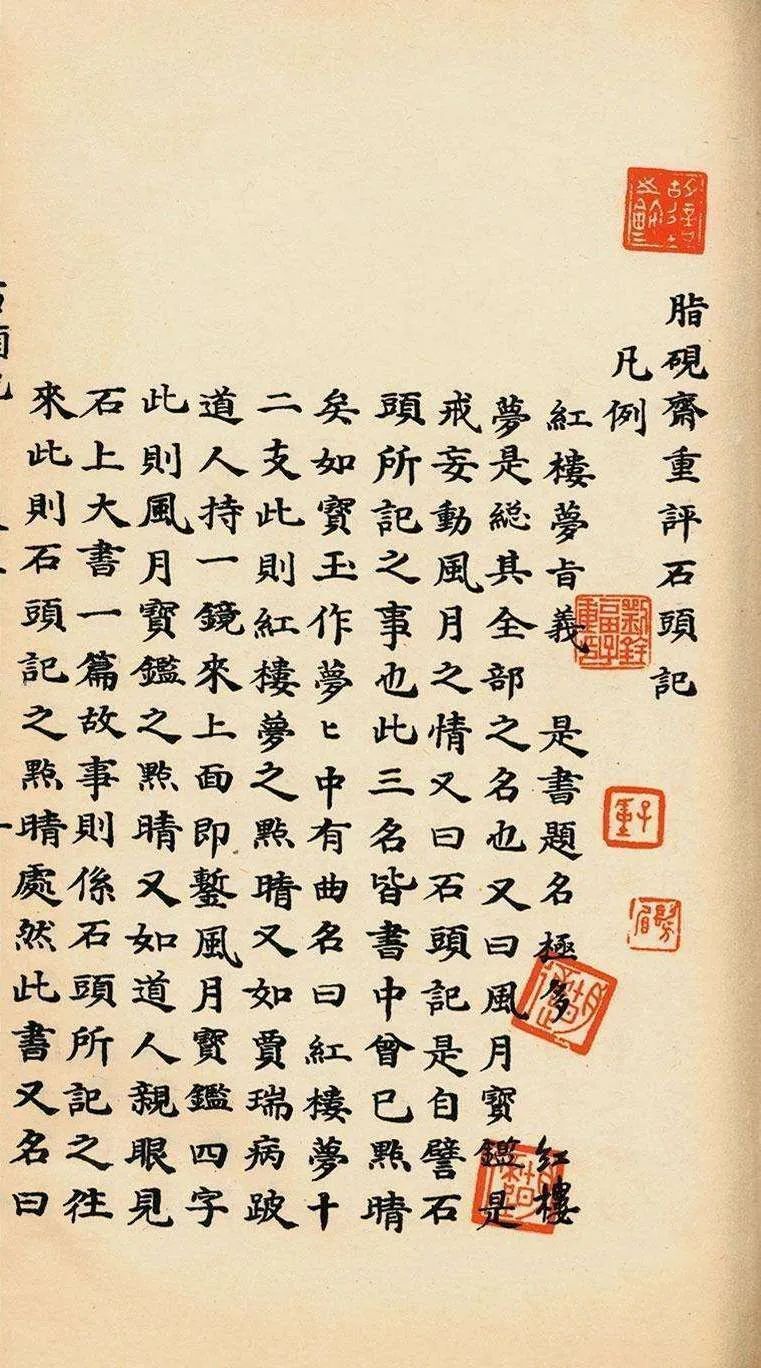 脂硯齋重評石頭記
凡例
紅樓夢旨義 是書題名極多 紅樓
夢是総其全部之名也又曰風月寳鑑是
戒妄動風月之情又曰石頭記是自譬石
頭所記之事也此三名皆書中曾已點晴
矣如寳玉作夢ヒ中有曲名曰紅樓夢十
二支此則紅樓夢之點晴又如賈瑞病跛
道人持一鏡來上面即鏨風月寳鑑四字
此則風月寳鑑之點晴又如道人親眼見
石上大書一篇故事則係石頭所記之徃
來此則石頭記之點晴處然此書又名曰
劉銓福子重印
子重
髣眉